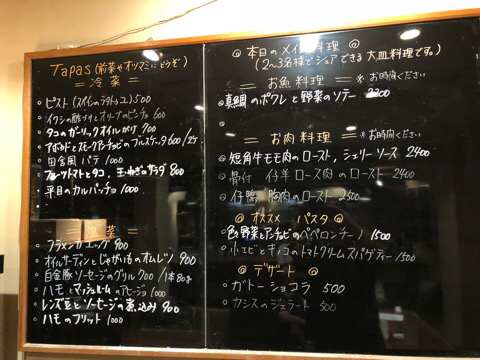 Tapas (前菜やオツマミにどうぞ)
= 冷菜 =
ピスト (スペインのラタトゥユ) 500
イワシの酢づけとオリーブのピンチョ 600
タコのガーリックオイルがけ 900
アボカドとスモークアンチョビのブルスケッタ 600/2コ
白金豚 パテ 1000
フルーツトマトとタコ、玉ねぎのサラダ 800
平目のカルパッチョ 1000
= 温菜 =
フラメンカエッグ 900
オイルサーディンとじゃがいものオムレツ 900
白金豚ソーセージのグリル 700 /1本80g
ハモとマッシュルームのアヒージョ 1000
レンズ豆とソーセージの煮込み 900
ハモのフリット 1000
◎ 本日のメイン料理 ◎
(2〜3名様でシェアできる大皿料理です。)
= お魚料理 = ※お時間ください
真鯛のポワレと野菜のソテー 2200
= お肉料理 = ※お時間ください
短角牛モモ肉のロースト、シェリーソース 2400
骨付 仔羊ロース肉のロースト 2400
仔鴨 胸肉のロースト 2500
◎ オススメ パスタ ◎
色々野菜とアンチョビのペペロンチーノ 1500
小エビとキノコのトマトクリームスパゲティー 1500
◎ デザート ◎
ガトーショコラ 500
カシスのジェラート 500